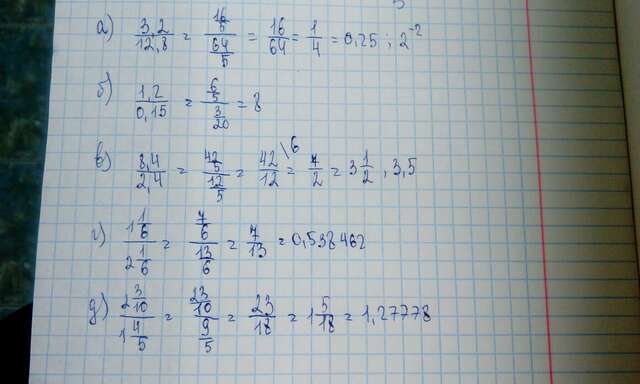 а) 3,2/12,8 = (16/5)/(64/5) = 16/64 = 1/4 = 0,25 ; 2^-2
б) 1,2/0,15 = (6/5)/(3/20) = 8
в) 8,4/2,4 = (42/5)/(12/5) = 42/12 \6 = 7/2 = 3 1/2 , 3,5
г) (1 1/6)/(2 1/6) = (7/6)/(13/6) = 7/13 = 0,538462
д) (2 3/10)/(1 4/5) = (23/10)/(9/5) = 23/18 = 1 5/18 = 1,27778